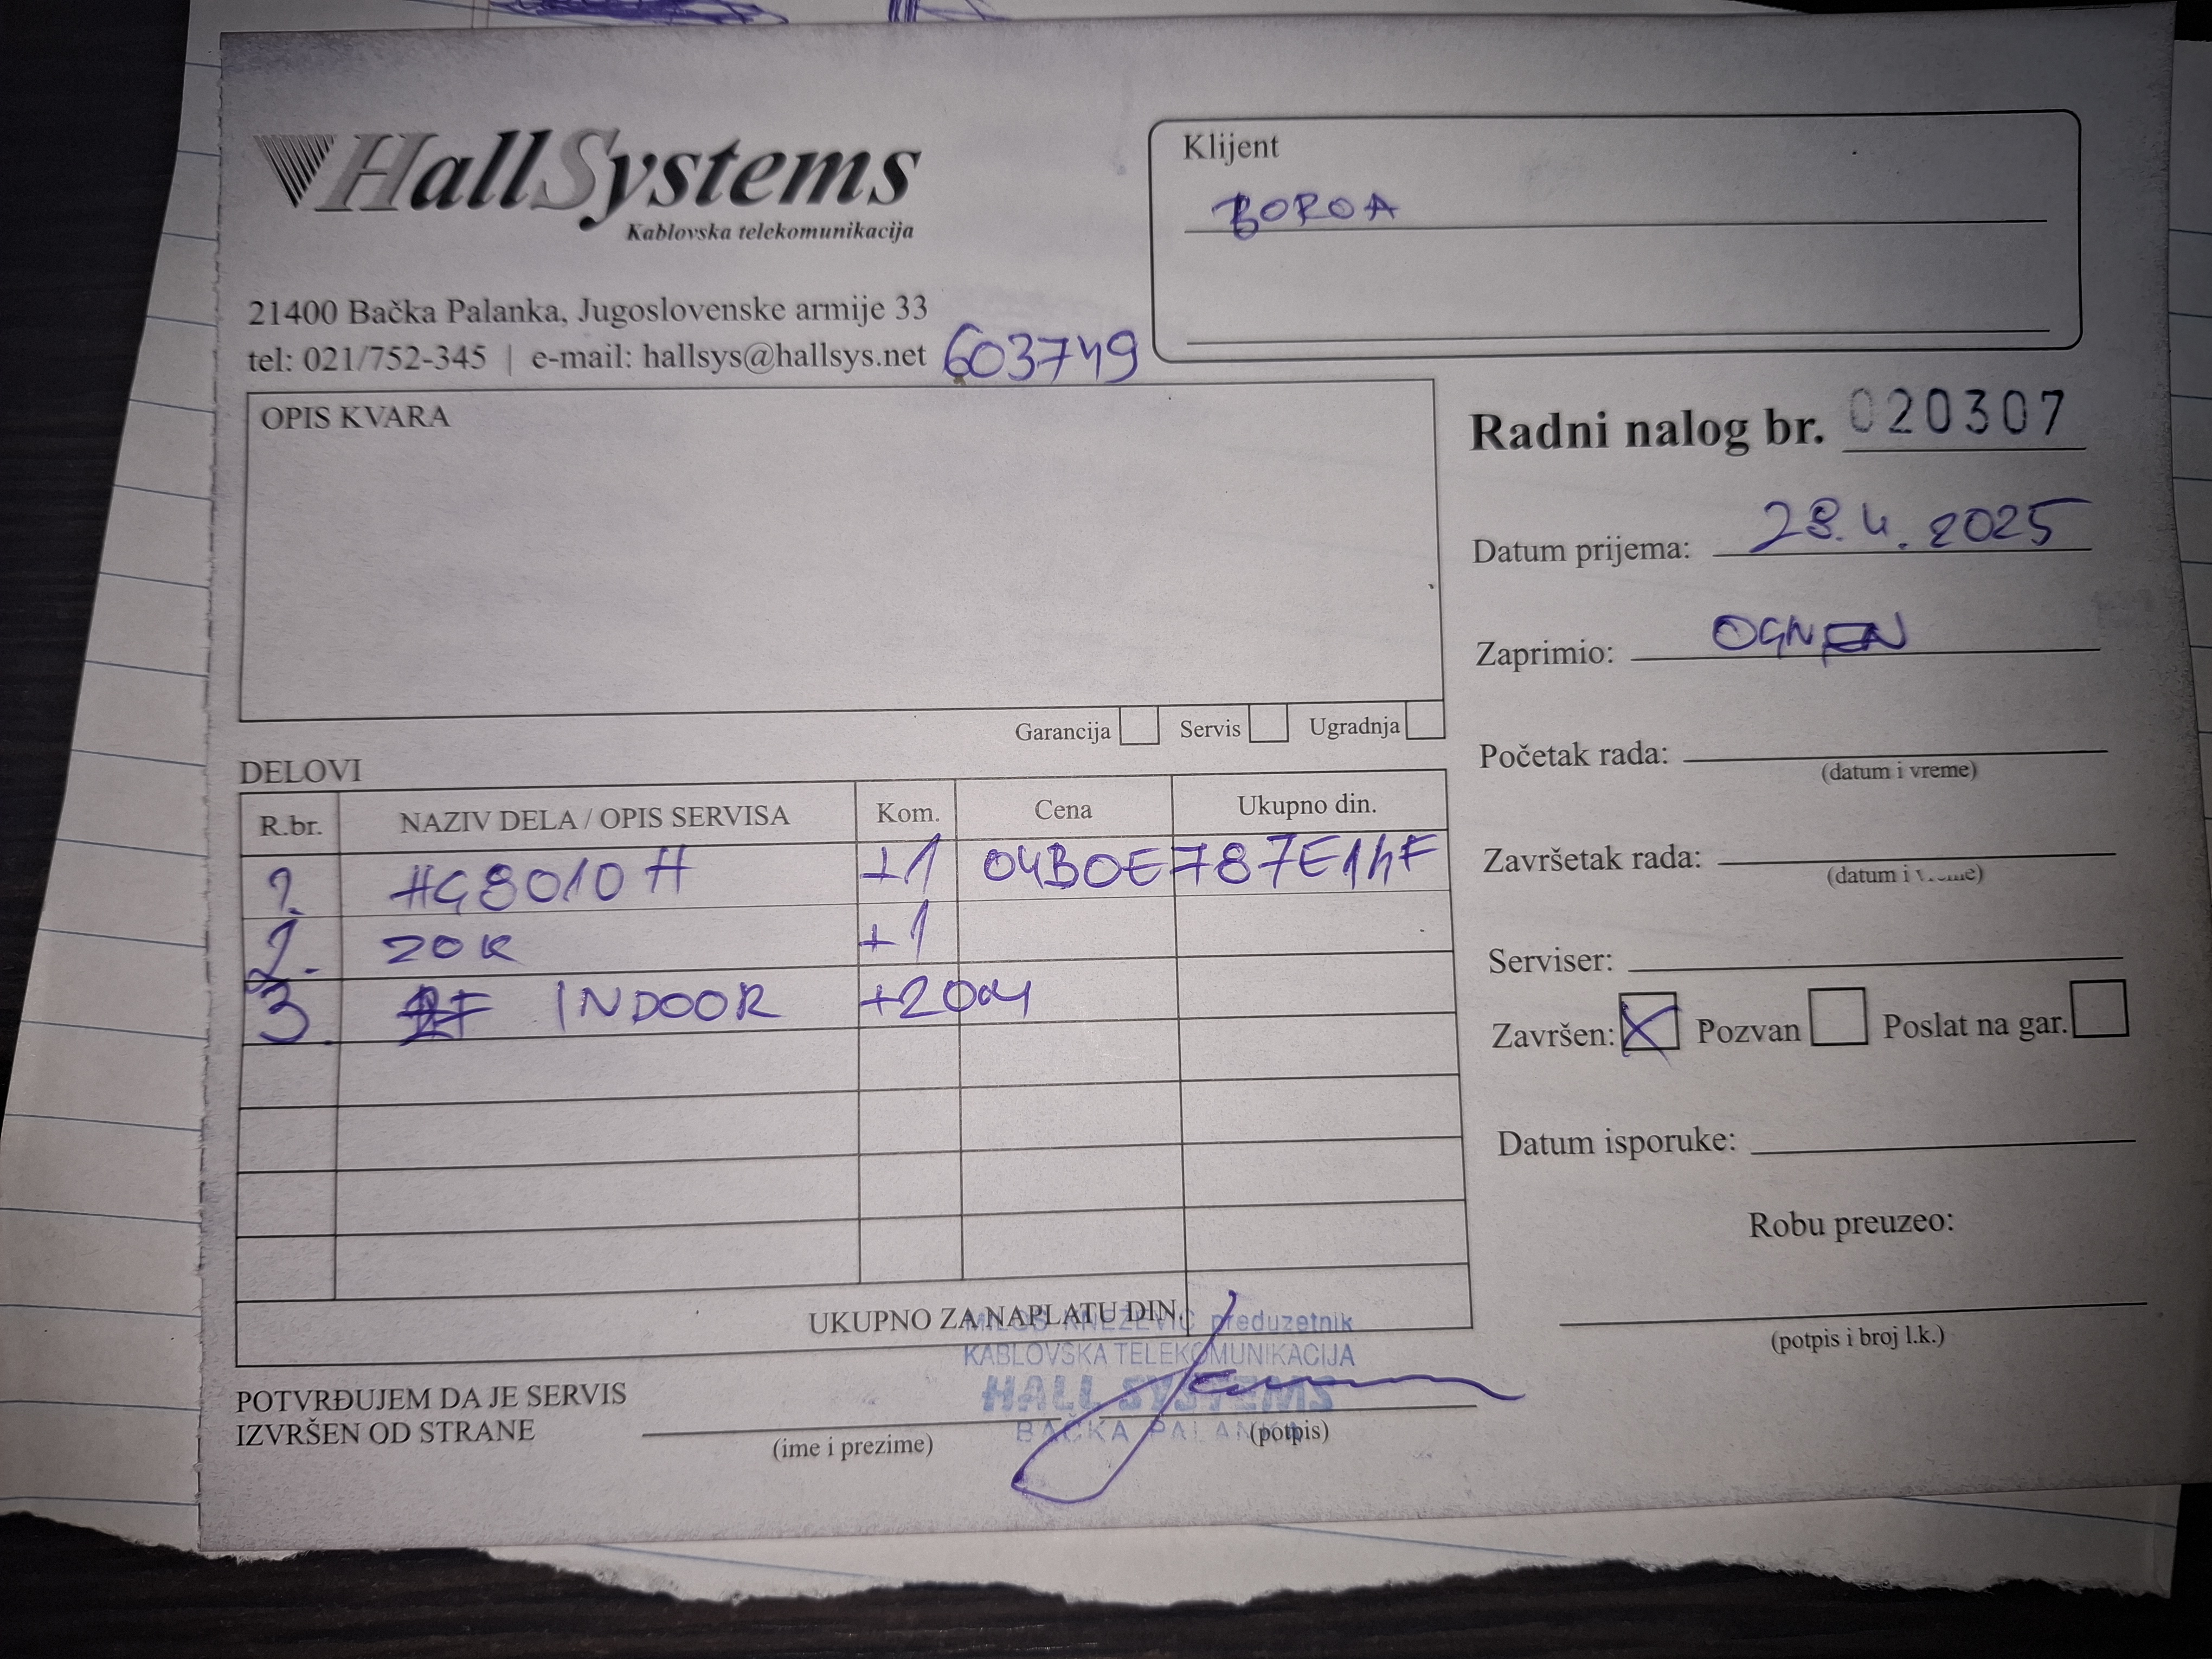 HallSystems
Kablovska telekomunikacija
21400 Bačka Palanka, Jugoslovenske armije 33
tel: 021/752-345 | e-mail: hallsys@hallsys.net 603749
Klijent
BOROA
OPIS KVARA
Garancija Servis Ugradnja
Radni nalog br. 020307
Datum prijema: 28.4.2025
Zaprimio: OGNEN
Početak rada:
(datum i vreme)
Završetak rada:
(datum i vreme)
Serviser:
Završen: X Pozvan Poslat na gar.
Datum isporuke:
Robu preuzeo:
(potpis i broj l.k.)
DELOVI
R.br. NAZIV DELA / OPIS SERVISA Kom. Cena Ukupno din.
1. HG8010H +1 04B0E787E14F
2. ZOK +1
3. INDOOR +20m
UKUPNO ZA NAPLATU DIN.
MILOŠ KNEŽEVIĆ preduzetnik
KABLOVSKA TELEKOMUNIKACIJA
HALL SYSTEMS
BAČKA PALANKA
POTVRĐUJEM DA JE SERVIS
IZVRŠEN OD STRANE
(ime i prezime) (potpis)